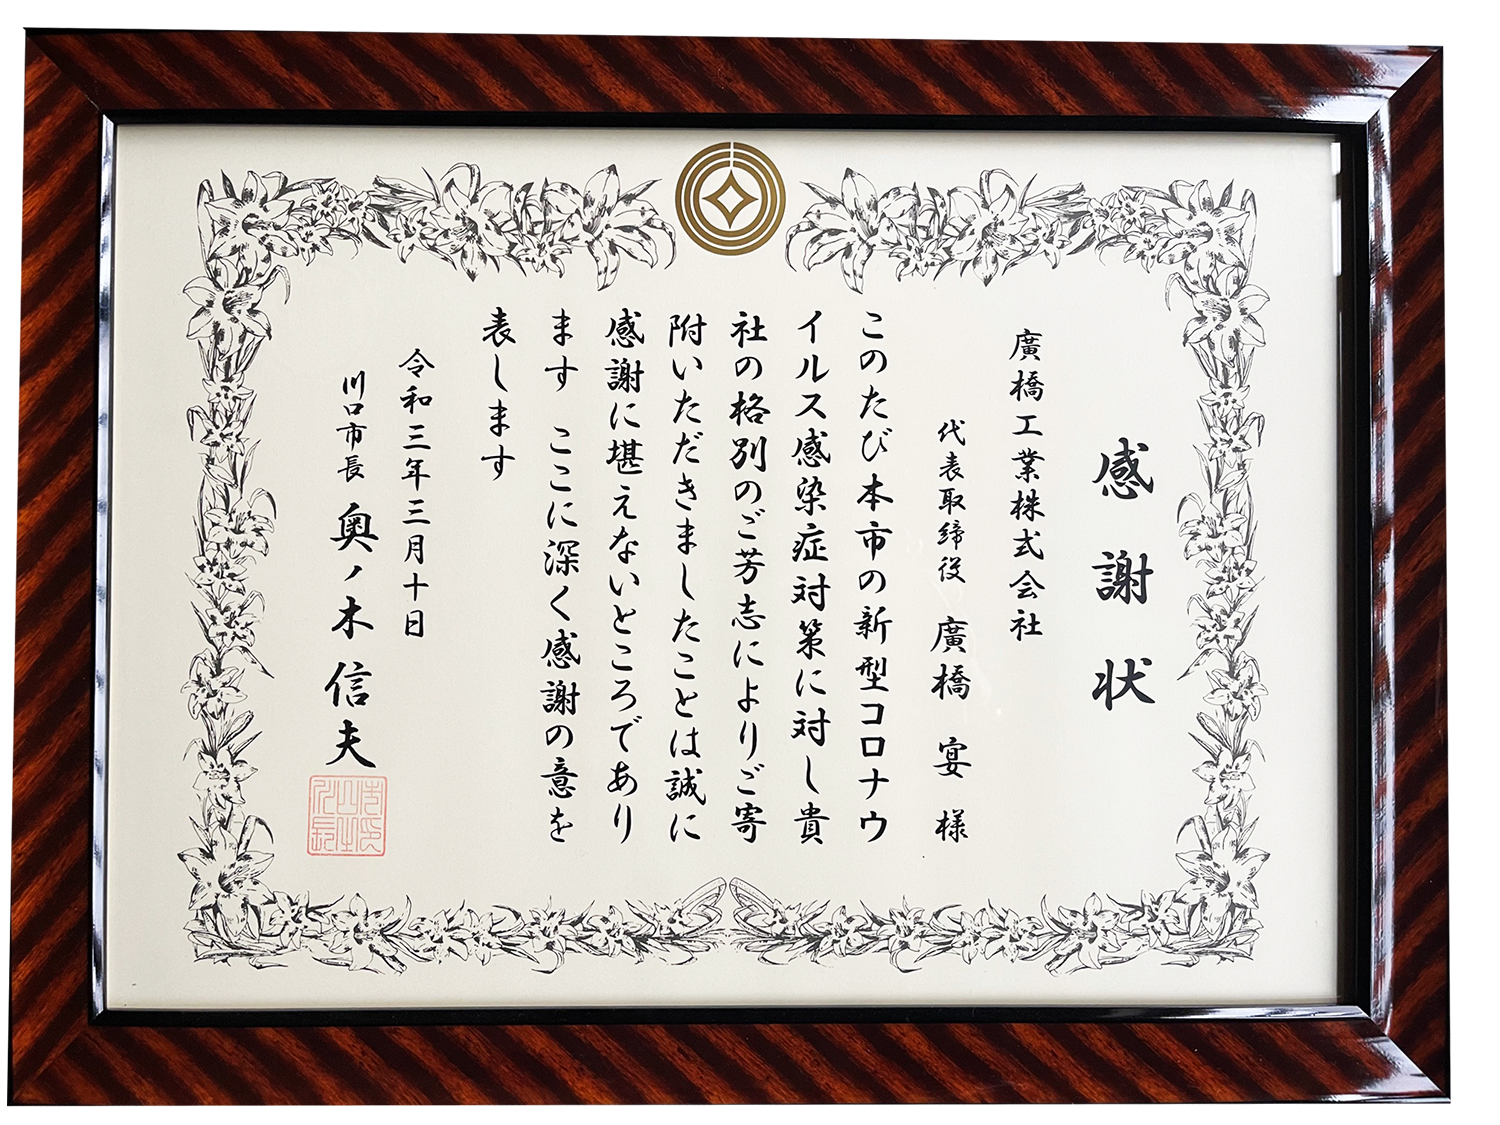 感謝状
廣橋工業株式会社
代表取締役 廣橋 宴 様
このたび本市の新型コロナウ
イルス感染症対策に対し貴
社の格別のご芳志によりご寄
附いただきましたことは誠に
感謝に堪えないところであり
ます ここに深く感謝の意を
表します
令和三年三月十日
川口市長 奥ノ木 信夫